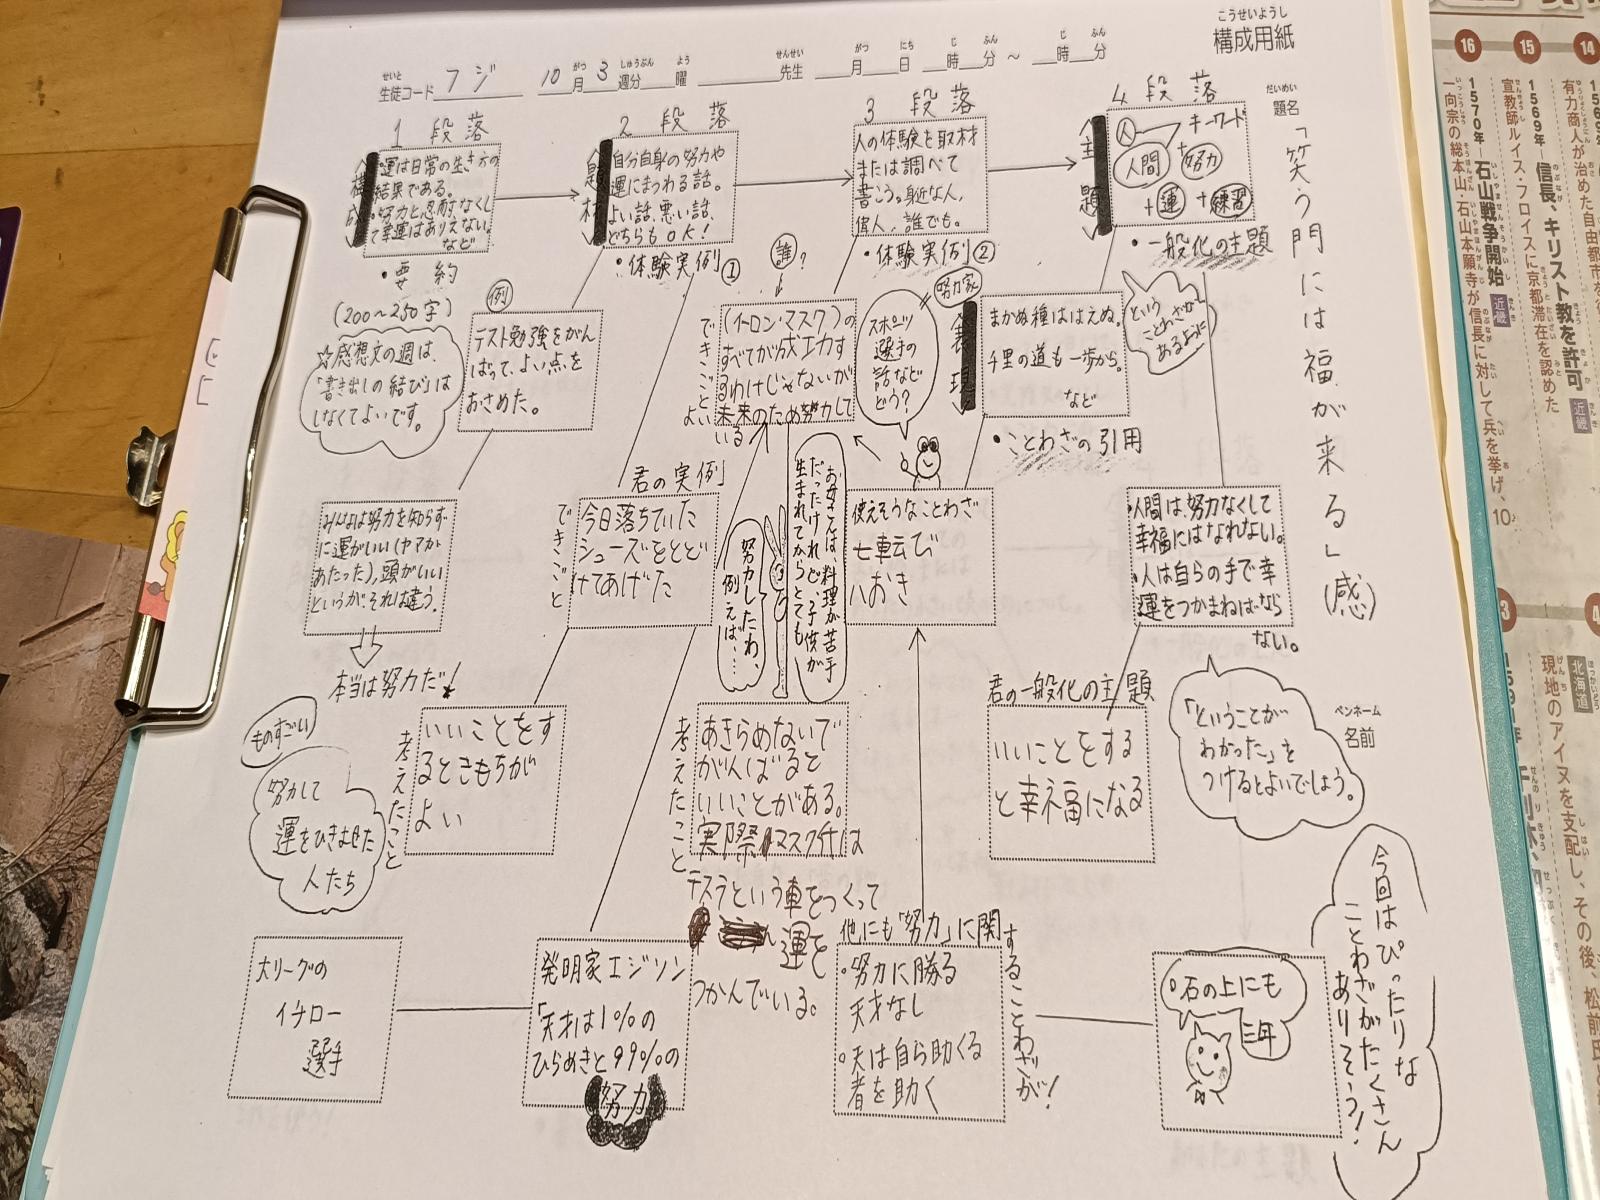 こうせいようし
構成用紙
せいと
生徒コード フジ 10月3週分 曜 先生 月 日 時 分 ～ 時 分
がつ しゅうぶん よう せんせい がつ にち じ ふん じ ふん
だいめい
題名
「笑う門には福が来る」(感)
ペンネーム
名前
1段落
構成
・運は日常の生き方の
結果である。
・努力と忍耐なくし
て幸運はありえない。
など
・要約
(200～250字)
☆感想文の週は、
「書き出しの結び」は
しなくてよいです。
2段落
題材
自分自身の努力や
運にまつわる話。
よい話、悪い話、
どちらもOK!
・体験実例①
例
テスト勉強をがん
ばって、よい点を
おさめた。
3段落
人の体験を取材
または調べて
書こう。身近な人、
偉人、誰でも。
・体験実例②
誰?
できごと
(イーロン・マスク)の
すべてが成工力す
るわけじゃないが
未来のため努力して
いる
努力家
スポーツ
選手の
話など
どう?
4段落
主題
人
キーワード
人間
+
努力
+運
+練習
・一般化の主題
表現
まかぬ種ははえぬ。
千里の道も一歩から。
など
・ことわざの引用
という
ことわざが
あるように
みんなは努力を知らず
に運がいい(ヤマが
あたった)、頭がいい
というが、それは違う。
本当は努力だ!
君の実例
できごと
今日落ちていた
シューズをとど
けてあげた
努力したわ、
例えば、…
お母さんは料理が苦手
だったけれど、子供が
生まれてからとても
使えそうなことわざ
七転び
八おき
・人間は、努力なくして
幸福にはなれない。
・人は自らの手で幸
運をつかまねばなら
ない。
ものすごい
努力して
運をひきよせた
人たち
考えたこと
いいことをす
るときもちが
よい
考えたこと
あきらめないで
がんばると
いいことがある。
実際マスク氏は
テスラという車をつくって
運を
つかんでいる。
君の一般化の主題
いいことをする
と幸福になる
「ということが
わかった」を
つけるとよいでしょう。
大リーグの
イチロー
選手
発明家エジソン
「天才は1%の
ひらめきと99%の
努力
他にも「努力」に関
することわざが!
・努力に勝る
天才なし
・天は自ら助くる
者を助く
・石の上にも
三年
今回はぴったりな
ことわざがたくさん
ありそう!
14
有力商人が治めた自由都市を
15
1569年 信長、キリスト教を許可 近畿
宣教師ルイス・フロイスに京都滞在を認めた
16
1570年 石山戦争開始 近畿
一向宗の総本山・石山本願寺が信長に対して兵を挙げ、10
北海道
現地のアイヌを支配し、その後、松前氏と